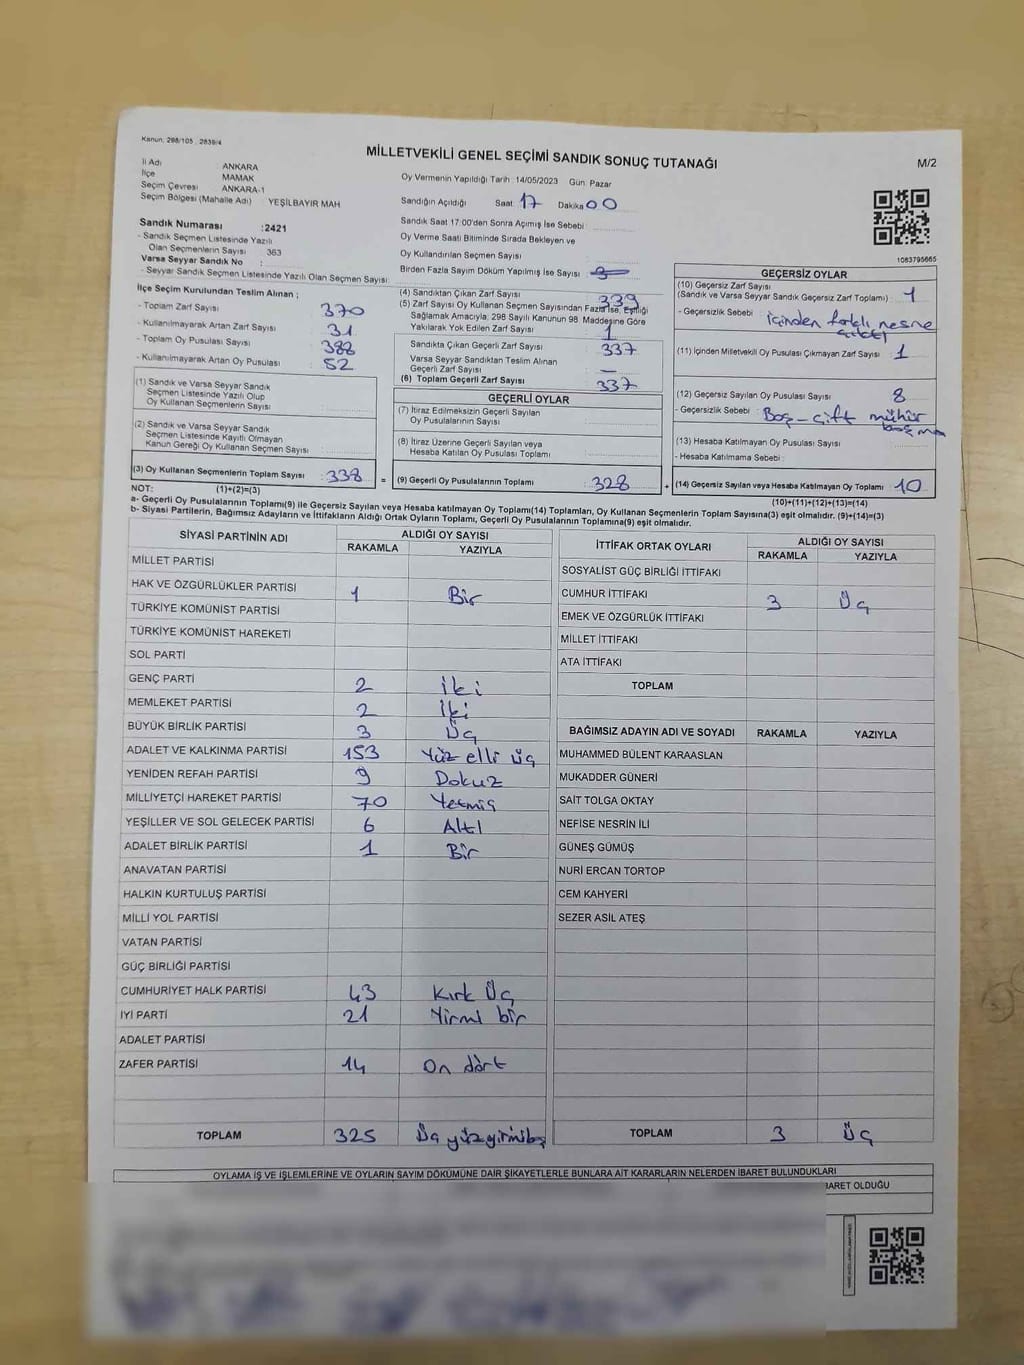 Kanun: 298/105 , 2839/4
MİLLETVEKİLİ GENEL SEÇİMİ SANDIK SONUÇ TUTANAĞI
M/2
İl Adı ANKARA
İlçe MAMAK
Seçim Çevresi ANKARA-1
Seçim Bölgesi (Mahalle Adı) YEŞİLBAYIR MAH
Oy Vermenin Yapıldığı Tarih : 14/05/2023 Gün: Pazar
Sandığın Açıldığı Saat 17 Dakika 00
Sandık Saat 17:00'den Sonra Açımış İse Sebebi
Oy Verme Saati Bitiminde Sırada Bekleyen ve
Oy Kullandırılan Seçmen Sayısı
Birden Fazla Sayım Döküm Yapılmış İse Sayısı
1083795665
Sandık Numarası :2421
- Sandık Seçmen Listesinde Yazılı
Olan Seçmenlerin Sayısı 363
Varsa Seyyar Sandık No :
- Seyyar Sandık Seçmen Listesinde Yazılı Olan Seçmen Sayısı:
İlçe Seçim Kurulundan Teslim Alınan ;
- Toplam Zarf Sayısı : 370
- Kullanılmayarak Artan Zarf Sayısı : 31
- Toplam Oy Pusulası Sayısı : 388
- Kullanılmayarak Artan Oy Pusulası : 52
(1) Sandık ve Varsa Seyyar Sandık
Seçmen Listesinde Yazılı Olup
Oy Kullanan Seçmenlerin Sayısı
(2) Sandık ve Varsa Seyyar Sandık
Seçmen Listesinde Kayıtlı Olmayan
Kanun Gereği Oy Kullanan Seçmen Sayısı
(3) Oy Kullanan Seçmenlerin Toplam Sayısı : 338 =
(4) Sandıktan Çıkan Zarf Sayısı 339
(5) Zarf Sayısı Oy Kullanan Seçmen Sayısından Fazla İse, Eşitliği
Sağlamak Amacıyla; 298 Sayılı Kanunun 98. Maddesine Göre
Yakılarak Yok Edilen Zarf Sayısı 1
Sandıkta Çıkan Geçerli Zarf Sayısı : 337
Varsa Seyyar Sandıktan Teslim Alınan
Geçerli Zarf Sayısı : –
(6) Toplam Geçerli Zarf Sayısı : 337
GEÇERLİ OYLAR
(7) İtiraz Edilmeksizin Geçerli Sayılan
Oy Pusulalarının Sayısı
(8) İtiraz Üzerine Geçerli Sayılan veya
Hesaba Katılan Oy Pusulası Toplamı
(9) Geçerli Oy Pusulalarının Toplamı : 328 +
GEÇERSİZ OYLAR
(10) Geçersiz Zarf Sayısı
(Sandık ve Varsa Seyyar Sandık Geçersiz Zarf Toplamı) : 1
- Geçersizlik Sebebi : içinden farklı nesne
(11) İçinden Milletvekili Oy Pusulası Çıkmayan Zarf Sayısı : 1
(12) Geçersiz Sayılan Oy Pusulası Sayısı 8
- Geçersizlik Sebebi : Boş – çift mühür
basma
(13) Hesaba Katılmayan Oy Pusulası Sayısı
- Hesaba Katılmama Sebebi :
(14) Geçersiz Sayılan veya Hesaba Katılmayan Oy Toplamı : 10
NOT: (1)+(2)=(3) (10)+(11)+(12)+(13)=(14)
a- Geçerli Oy Pusulalarının Toplamı(9) ile Geçersiz Sayılan veya Hesaba katılmayan Oy Toplamı(14) Toplamları, Oy Kullanan Seçmenlerin Toplam Sayısına(3) eşit olmalıdır. (9)+(14)=(3)
b- Siyasi Partilerin, Bağımsız Adayların ve İttifakların Aldığı Ortak Oyların Toplamı, Geçerli Oy Pusulalarının Toplamına(9) eşit olmalıdır.
SİYASİ PARTİNİN ADI ALDIĞI OY SAYISI
RAKAMLA YAZIYLA
MİLLET PARTİSİ
HAK VE ÖZGÜRLÜKLER PARTİSİ 1 Bir
TÜRKİYE KOMÜNİST PARTİSİ
TÜRKİYE KOMÜNİST HAREKETİ
SOL PARTİ
GENÇ PARTİ 2 İki
MEMLEKET PARTİSİ 2 İki
BÜYÜK BİRLİK PARTİSİ 3 Üç
ADALET VE KALKINMA PARTİSİ 153 Yüz elli üç
YENİDEN REFAH PARTİSİ 9 Dokuz
MİLLİYETÇİ HAREKET PARTİSİ 70 Yetmiş
YEŞİLLER VE SOL GELECEK PARTİSİ 6 Altı
ADALET BİRLİK PARTİSİ 1 Bir
ANAVATAN PARTİSİ
HALKIN KURTULUŞ PARTİSİ
MİLLİ YOL PARTİSİ
VATAN PARTİSİ
GÜÇ BİRLİĞİ PARTİSİ
CUMHURİYET HALK PARTİSİ 43 Kırk Üç
İYİ PARTİ 21 Yirmi bir
ADALET PARTİSİ
ZAFER PARTİSİ 14 On dört
TOPLAM 325 Üç yüz yirmibeş
İTTİFAK ORTAK OYLARI ALDIĞI OY SAYISI
RAKAMLA YAZIYLA
SOSYALİST GÜÇ BİRLİĞİ İTTİFAKI
CUMHUR İTTİFAKI 3 Üç
EMEK VE ÖZGÜRLÜK İTTİFAKI
MİLLET İTTİFAKI
ATA İTTİFAKI
TOPLAM
BAĞIMSIZ ADAYIN ADI VE SOYADI RAKAMLA YAZIYLA
MUHAMMED BÜLENT KARAASLAN
MUKADDER GÜNERİ
SAİT TOLGA OKTAY
NEFİSE NESRİN İLİ
GÜNEŞ GÜMÜŞ
NURİ ERCAN TORTOP
CEM KAHYERİ
SEZER ASİL ATEŞ
TOPLAM 3 Üç
OYLAMA İŞ VE İŞLEMLERİNE VE OYLARIN SAYIM DÖKÜMÜNE DAİR ŞİKAYETLERLE BUNLARA AİT KARARLARIN NELERDEN İBARET BULUNDUKLARI
BARET OLDUĞU